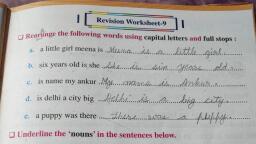 Revision Worksheet-9
❑ Rearrange the following words using capital letters and full stops :
a. a little girl meena is Meena is a little girl.
b. six years old is she She is six years old.
c. is name my ankur My name is Ankur.
d. is delhi a city big Delhi is a big city.
e. a puppy was there There was a puppy.
❑ Underline the 'nouns' in the sentences below.